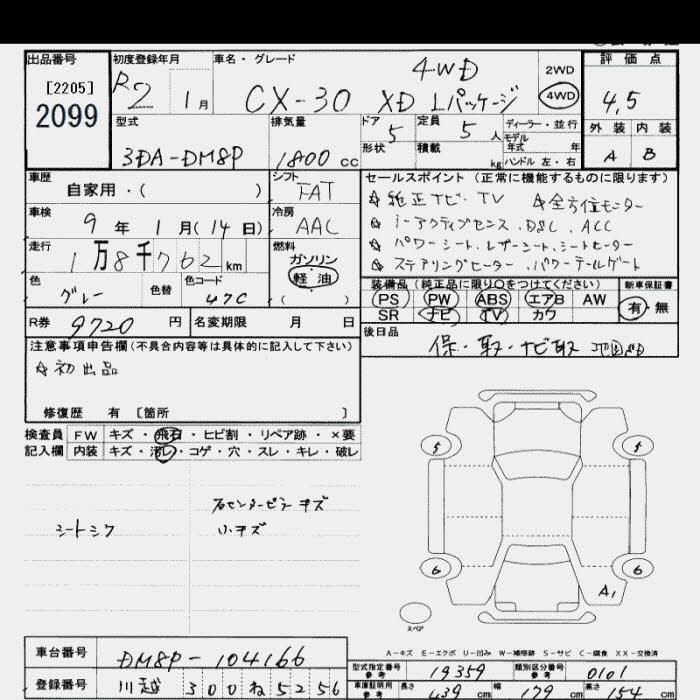 出品番号
[2205]
2099
初度登録年月
R2 1月
車名・グレード
4WD
CX-30 XD Lパッケージ
2WD
4WD
評価点
4,5
外装 内装
A B
型式
3DA-DM8P
排気量
1800 cc
ドア 5
形状
定員 5 人
積載 kg
ディーラー・並行
モデル
年式 年
ハンドル 左・右
車歴
自家用・( )
シフト
FAT
車検
9年 1月(14日)
冷房
AAC
走行
1万8千762km
燃料
ガソリン
軽油
( )
色
グレー
色替
色コード
47C
セールスポイント(正常に機能するものに限ります)
☆純正ナビ・TV ☆全方位モニター
☆i-アクティブセンス、DSC、ACC
☆パワーシート、レザーシート、シートヒーター
☆ステアリングヒーター、パワーテールゲート
装備品(純正品に限り○をつけてください)
PS PW ABS エアB AW
SR ナビ TV カワ
新車保証書
有・無
R券 9720円
名変期限 月 日
後日品
保・取・ナビ取
注意事項申告欄(不具合内容等は具体的に記入して下さい)
☆初出品
修復歴 有 [箇所 ]
検査員
記入欄
FW キズ・飛石・ヒビ割・リペア跡・×要
内装 キズ・汚レ・コゲ・穴・スレ・キレ・破レ
シートシワ
右センターピラーキズ
小キズ
5
5
6
6
A1
スペア
A-キズ E-エクボ U-凹み W-補修跡 S-サビ C-腐食 XX-交換済
車台番号
DM8P-104166
登録番号
川越 300 ね 5256
型式指定番号
参考
19359
類別区分番号
参考
0101
車庫証明用
参考
長さ 439 cm
幅 179 cm
高さ 154 cm